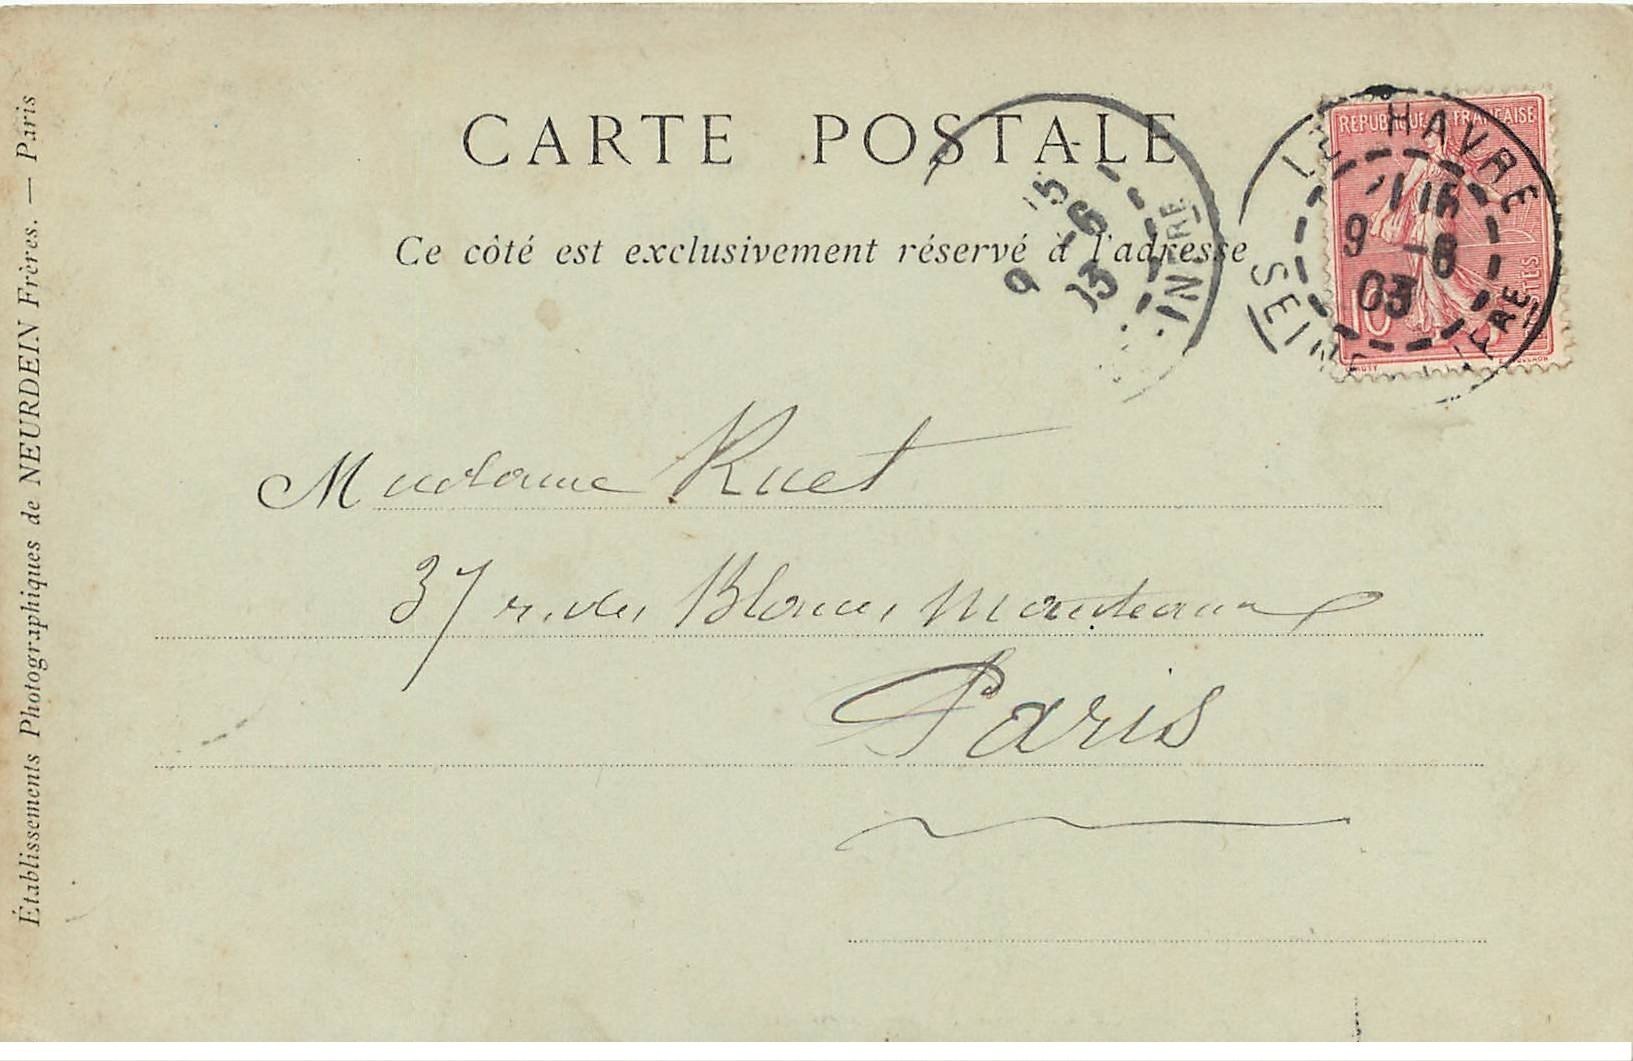 CARTE POSTALE
Ce côté est exclusivement réservé à l'adresse
REPUBLIQUE FRANÇAISE
POSTES
10
LE HAVRE
9 -6
03
SEINE INFRE
15
9 -6
03
INFRE
Madame Ruet
37 r. des Blancs Manteaux
Paris
Établissements Photographiques de NEURDEIN Frères. — Paris